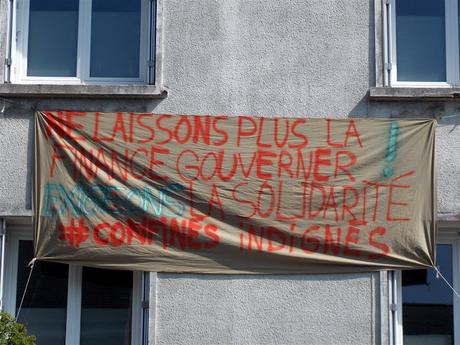 NE LAISSONS PLUS LA
FINANCE GOUVERNER !
EXIGEONS LA SOLIDARITÉ
#CONFINÉS INDIGNÉS